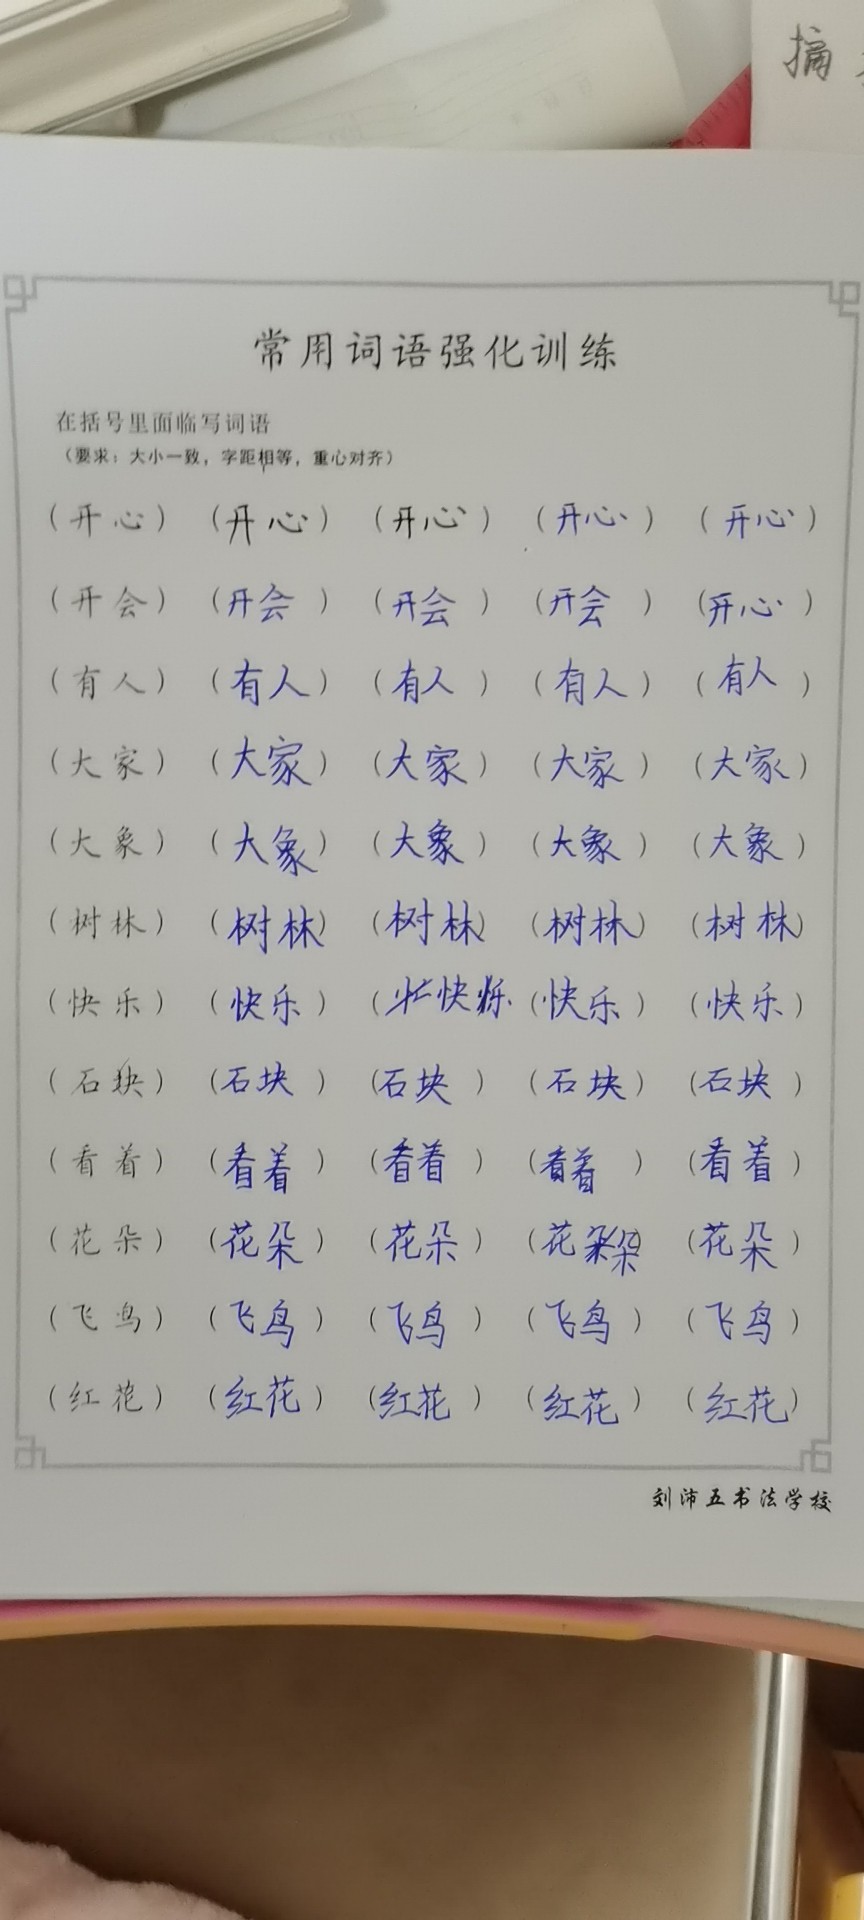 摘
常用词语强化训练
在括号里面临写词语
（要求：大小一致，字距相等，重心对齐）
（开心）（开心）（开心）（开心）（开心）
（开会）（开会）（开会）（开会）（开心）
（有人）（有人）（有人）（有人）（有人）
（大家）（大家）（大家）（大家）（大家）
（大象）（大象）（大象）（大象）（大象）
（树林）（树林）（树林）（树林）（树林）
（快乐）（快乐）（忙快乐（快乐）（快乐）
（石块）（石块）（石块）（石块）（石块）
（看着）（看着）（看着）（看着）（看着）
（花朵）（花朵）（花朵）（花朵）（花朵）
（飞鸟）（飞鸟）（飞鸟）（飞鸟）（飞鸟）
（红花）（红花）（红花）（红花）（红花）
刘沛五书法学校